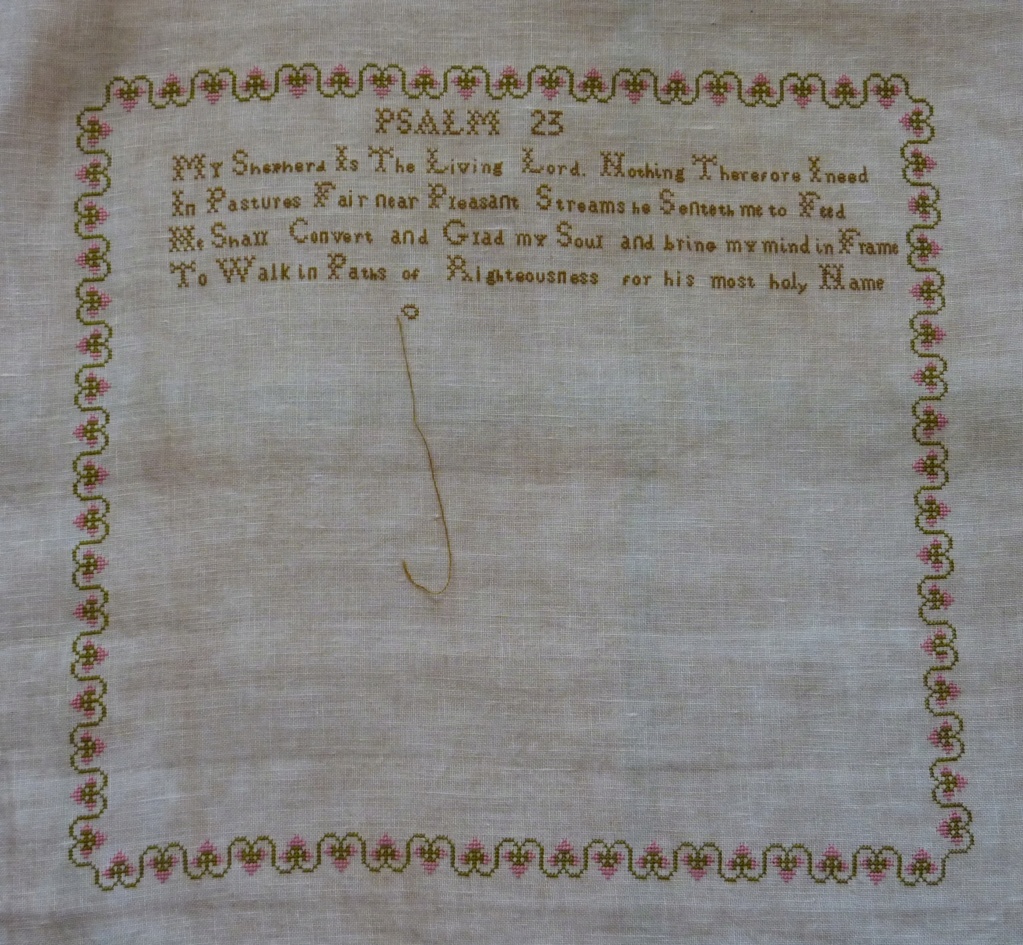 PSALM 23
My Shepherd Is The Living Lord. Nothing Therefore I need
In Pastures Fair near Pleasant Streams he Senteth me to Feed
He Shall Convert and Glad my Soul and bring my mind in Frame
To Walk in Paths of Righteousness for his most holy Name